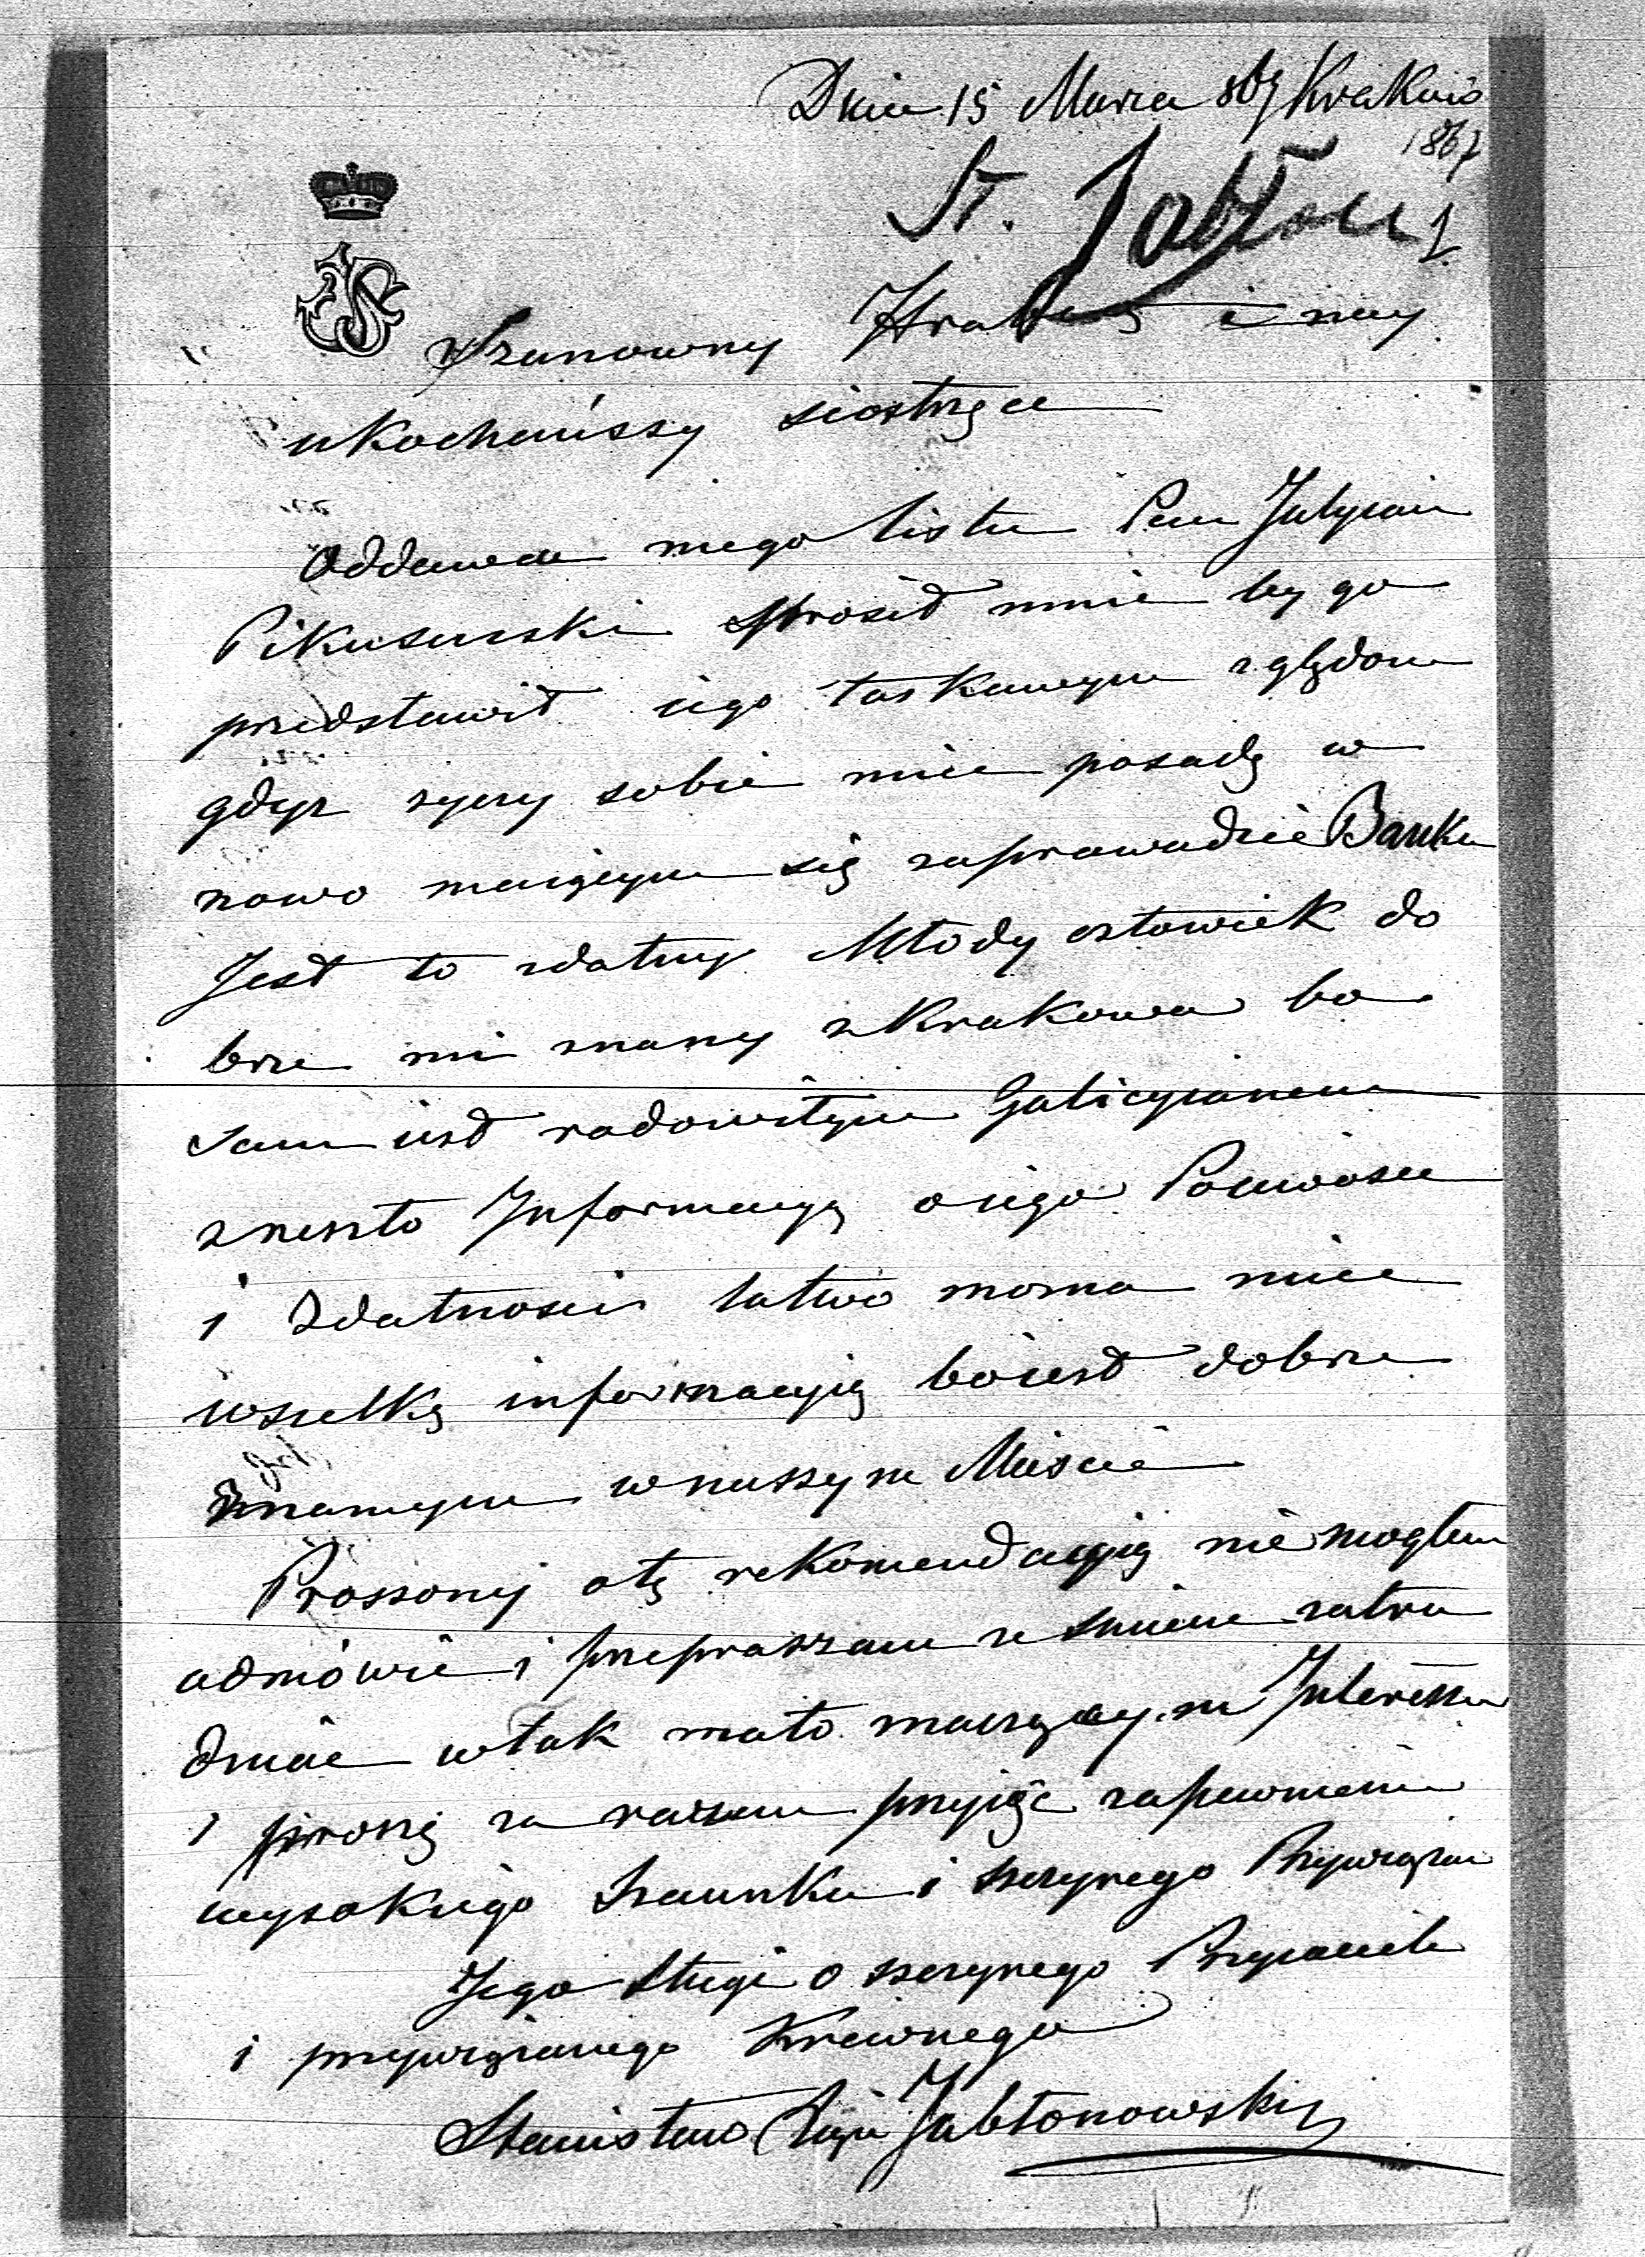 Dnia 15 Marca 867 Kraków
1867
St. Jabłon
Szanowny Hrabio i nay
ukochańszy siostrzęce
Oddawca mego listu Pan Julyian
prosił mnie by go
przedstawił iego łaskawym zględom
gdyz zyczy sobie miec posadę w
nowo maiącym się zaprowadzic Banku
Jest to zdatny Młody człowiek do
brze mi znany z Krakowa bo
sam iest rodowitym Galicyianem
zreszto Informacyą o iego Poczciwosci
i Zdatnosci łatwo mozna miec
wszelką informacyią bo iest dobrze
znanym w naszym Miescie
Proszony o tę rekomendacyią nie mogłem
odmówic i przepraszam ze smiem zatru
dniac w tak mało znaczącym Interessie
i proszę za razem przyiąć zapewnienie
wysokiego Szacunku i szczyrego Przywiązania
Jego Sługi o szczyrego Przyiaciela
i przywiązanego Krewnego
Stanisław Xiąże Jabłonowski